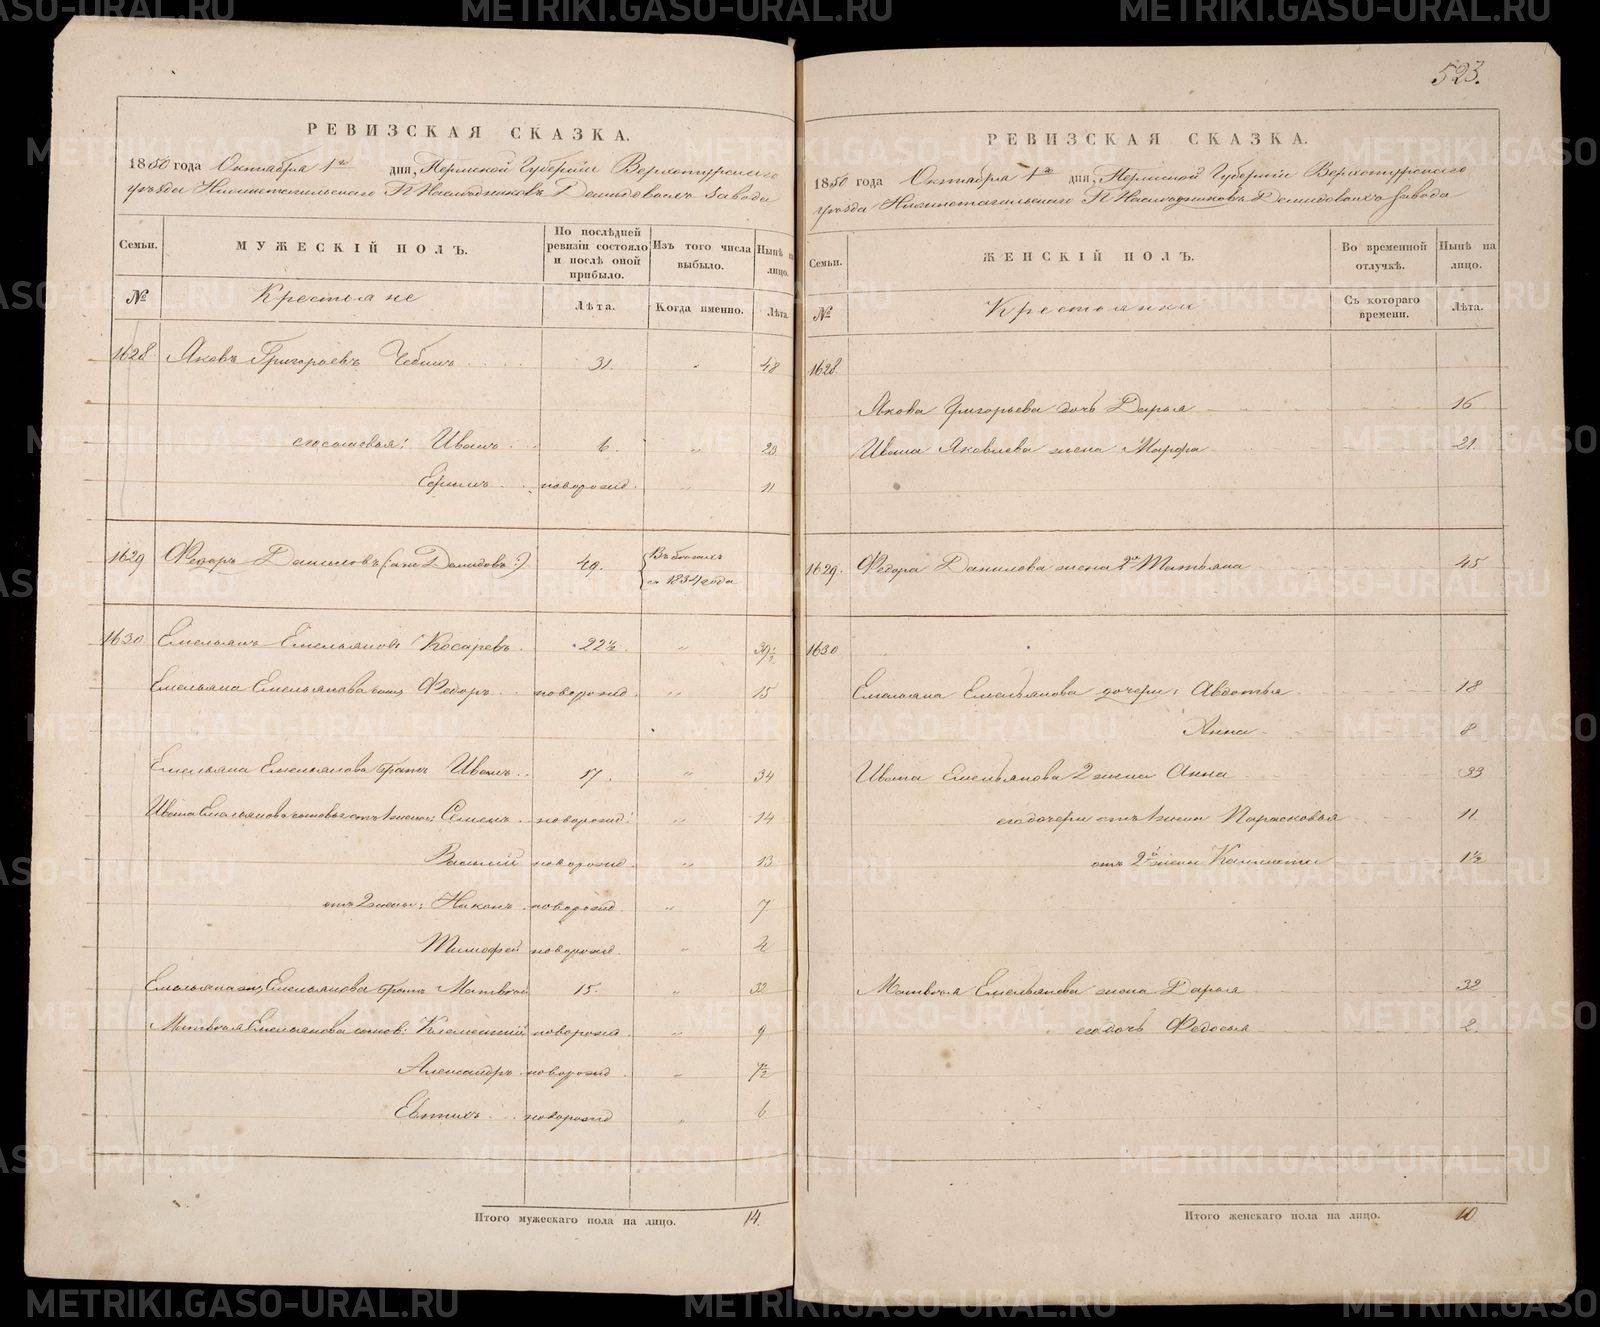 METRIKI.GASO-URAL.RU
РЕВИЗСКАЯ СКАЗКА.
1850 года Октября 1го дня, Пермской Губерніи Верхотурскаго
уѣзда Нижнетагильскаго Г. Наслѣдниковъ Демидовыхъ завода
Семьи.
МУЖЕСКІЙ ПОЛЪ.
По послѣдней ревизіи состояло и послѣ оной прибыло.
Изъ того числа выбыло.
Нынѣ на лицо.
№
Крестьяне
Лѣта.
Когда именно.
Лѣта.
1628 Яковъ Григорьевъ 31. " 48
его сыновья: Иванъ 6. " 23
Ефимъ новорожд. " 11
1629 Федоръ Даниловъ (а не Демидовъ:) 49. Въ бѣгахъ
съ 1834 года
1630 Емельянъ Емельяновъ Косаревъ 22½ " 39½
Емельяна Емельянова сынъ Федоръ новорожд. " 15
Емельяна Емельянова братъ Иванъ 17. " 34
Ивана Емельянова сыновья отъ 1 жены: Семенъ новорожд. " 14
Василій новорожд. " 13
отъ 2 жены: Никонъ новорожд. " 7
Тимофей новорожд. " 2
Емельяна Емельянова братъ Матвѣй 15. " 32
Матвѣя Емельянова сынов: Климентій новорожд. " 9
Александръ новорожд. " 7½
Евтихъ новорожд " 6
Итого мужескаго пола на лицо. 14.
523.
РЕВИЗСКАЯ СКАЗКА.
1850 года Октября 1го дня, Пермской Губерніи Верхотурскаго
уѣзда Нижнетагильскаго Г. Наслѣдниковъ Демидовыхъ завода
Семьи.
ЖЕНСКІЙ ПОЛЪ.
Во временной отлучкѣ.
Нынѣ на лицо.
№
Крестьянки
Съ котораго времени.
Лѣта.
1628.
Якова Григорьева дочь Дарья 16
Ивана Яковлева жена Марфа 21.
1629. Федора Данилова жена 2я Татьяна 45
1630
Емельяна Емельянова дочери: Авдотья 18
Анна 8
Ивана Емельянова 2 жена Анна 33
его дочери отъ 1 жены Парасковья 11.
отъ 2й жены 1½
Матвѣя Емельянова жена Дарья 32
его дочь Федосья 2.
Итого женскаго пола на лицо. 10